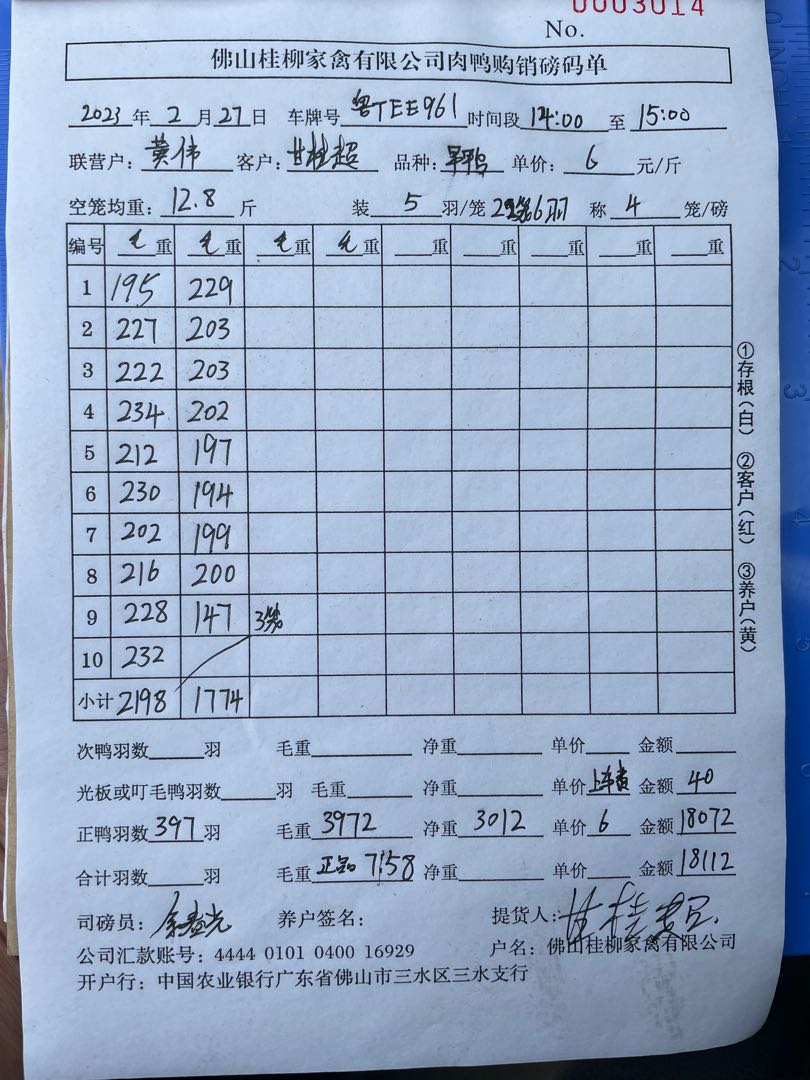 0003014
No.
佛山桂柳家禽有限公司肉鸭购销磅码单
2023 年 2 月 27 日 车牌号 粤TEE961 时间段 14:00 至 15:00
联营户: 黄伟 客户: 甘桂超 品种: 单价: 6 元/斤
空笼均重: 12.8 斤 装 5 羽/笼 6羽 称 4 笼/磅
编号 毛重 毛重 毛重 毛重 重 重 重 重 重
1 195 229
2 227 203
3 222 203
4 234 202
5 212 197
6 230 194
7 202 199
8 216 200
9 228 147 3笼
10 232
小计 2198 1774
①存根(白) ②客户(红) ③养户(黄)
次鸭羽数 羽 毛重 净重 单价 金额
光板或叮毛鸭羽数 羽 毛重 净重 单价 上车费 金额 40
正鸭羽数 397 羽 毛重 3972 净重 3012 单价 6 金额 18072
合计羽数 羽 毛重 正品 7.58 净重 单价 金额 18112
司磅员: 养户签名: 提货人: 甘桂超
公司汇款账号: 4444 0101 0400 16929 户名: 佛山桂柳家禽有限公司
开户行: 中国农业银行广东省佛山市三水区三水支行